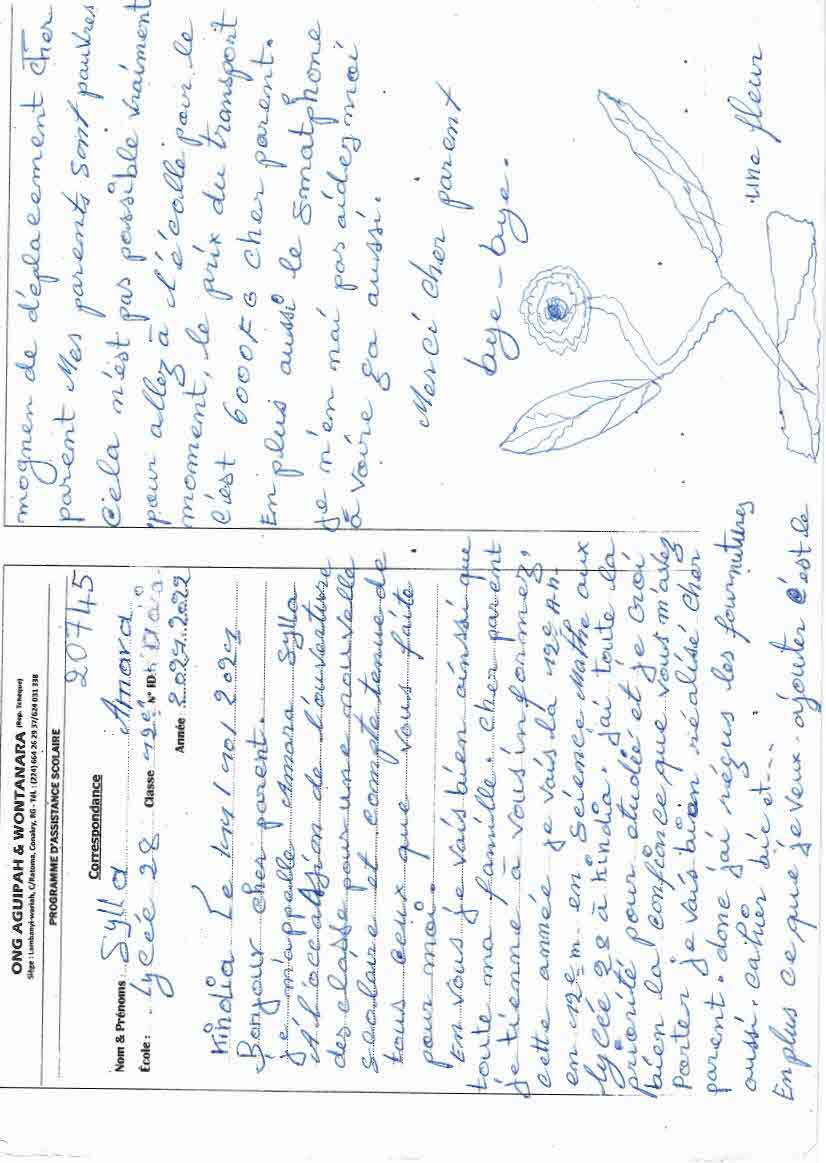 ONG AGUIPAH & WONTANARA (Rep. Tcheque)
Siège : Lambanyi-wariah, C/Ratoma, Conakry, RG - Tél. : (224) 664 26 29 37/624 031 338
PROGRAMME D'ASSISTANCE SCOLAIRE
20745
Correspondance
Nom & Prénoms : Sylla Amara
École : Lycée 28 Classe 12e N° ID :
Année 2021.2022
Kindia Le
Bonjour cher parent.
je m'appelle Amara Sylla
A l'occassion de l'ouverture
des classe pour une nouvelle
scolaire et compte tenue de
tous ceux que vous faite
pour moi.
En vous je vais bien ainssi que
toute ma famille. cher parent
je tienne à vous informez,
cette année je vais la 12e An.
en 12e m- en Science Mathé aux
lycée 28 à kindia. j'ai toute la
priorité pour etudiée et je croi
bien la confiènce que vous m'avez
Porter je vais bien réalisé cher
parent. donc j'ai réçus les fournutures
aussi. cahier bic et---
En plus ce que je veux. ajouter c'est le
mognen de déplacement cher
parent Mes parents sont pauvres
Cela n'est pas possible vraiment
pour allez à l'écolle pour le
moment, le prix du transport
c'est 6000FG cher parent.
En plus aussi le Smatphone
je n'en n'ai pas aidez moi
à voire ça aussi.
Merci cher parent
bye-bye.
une fleur